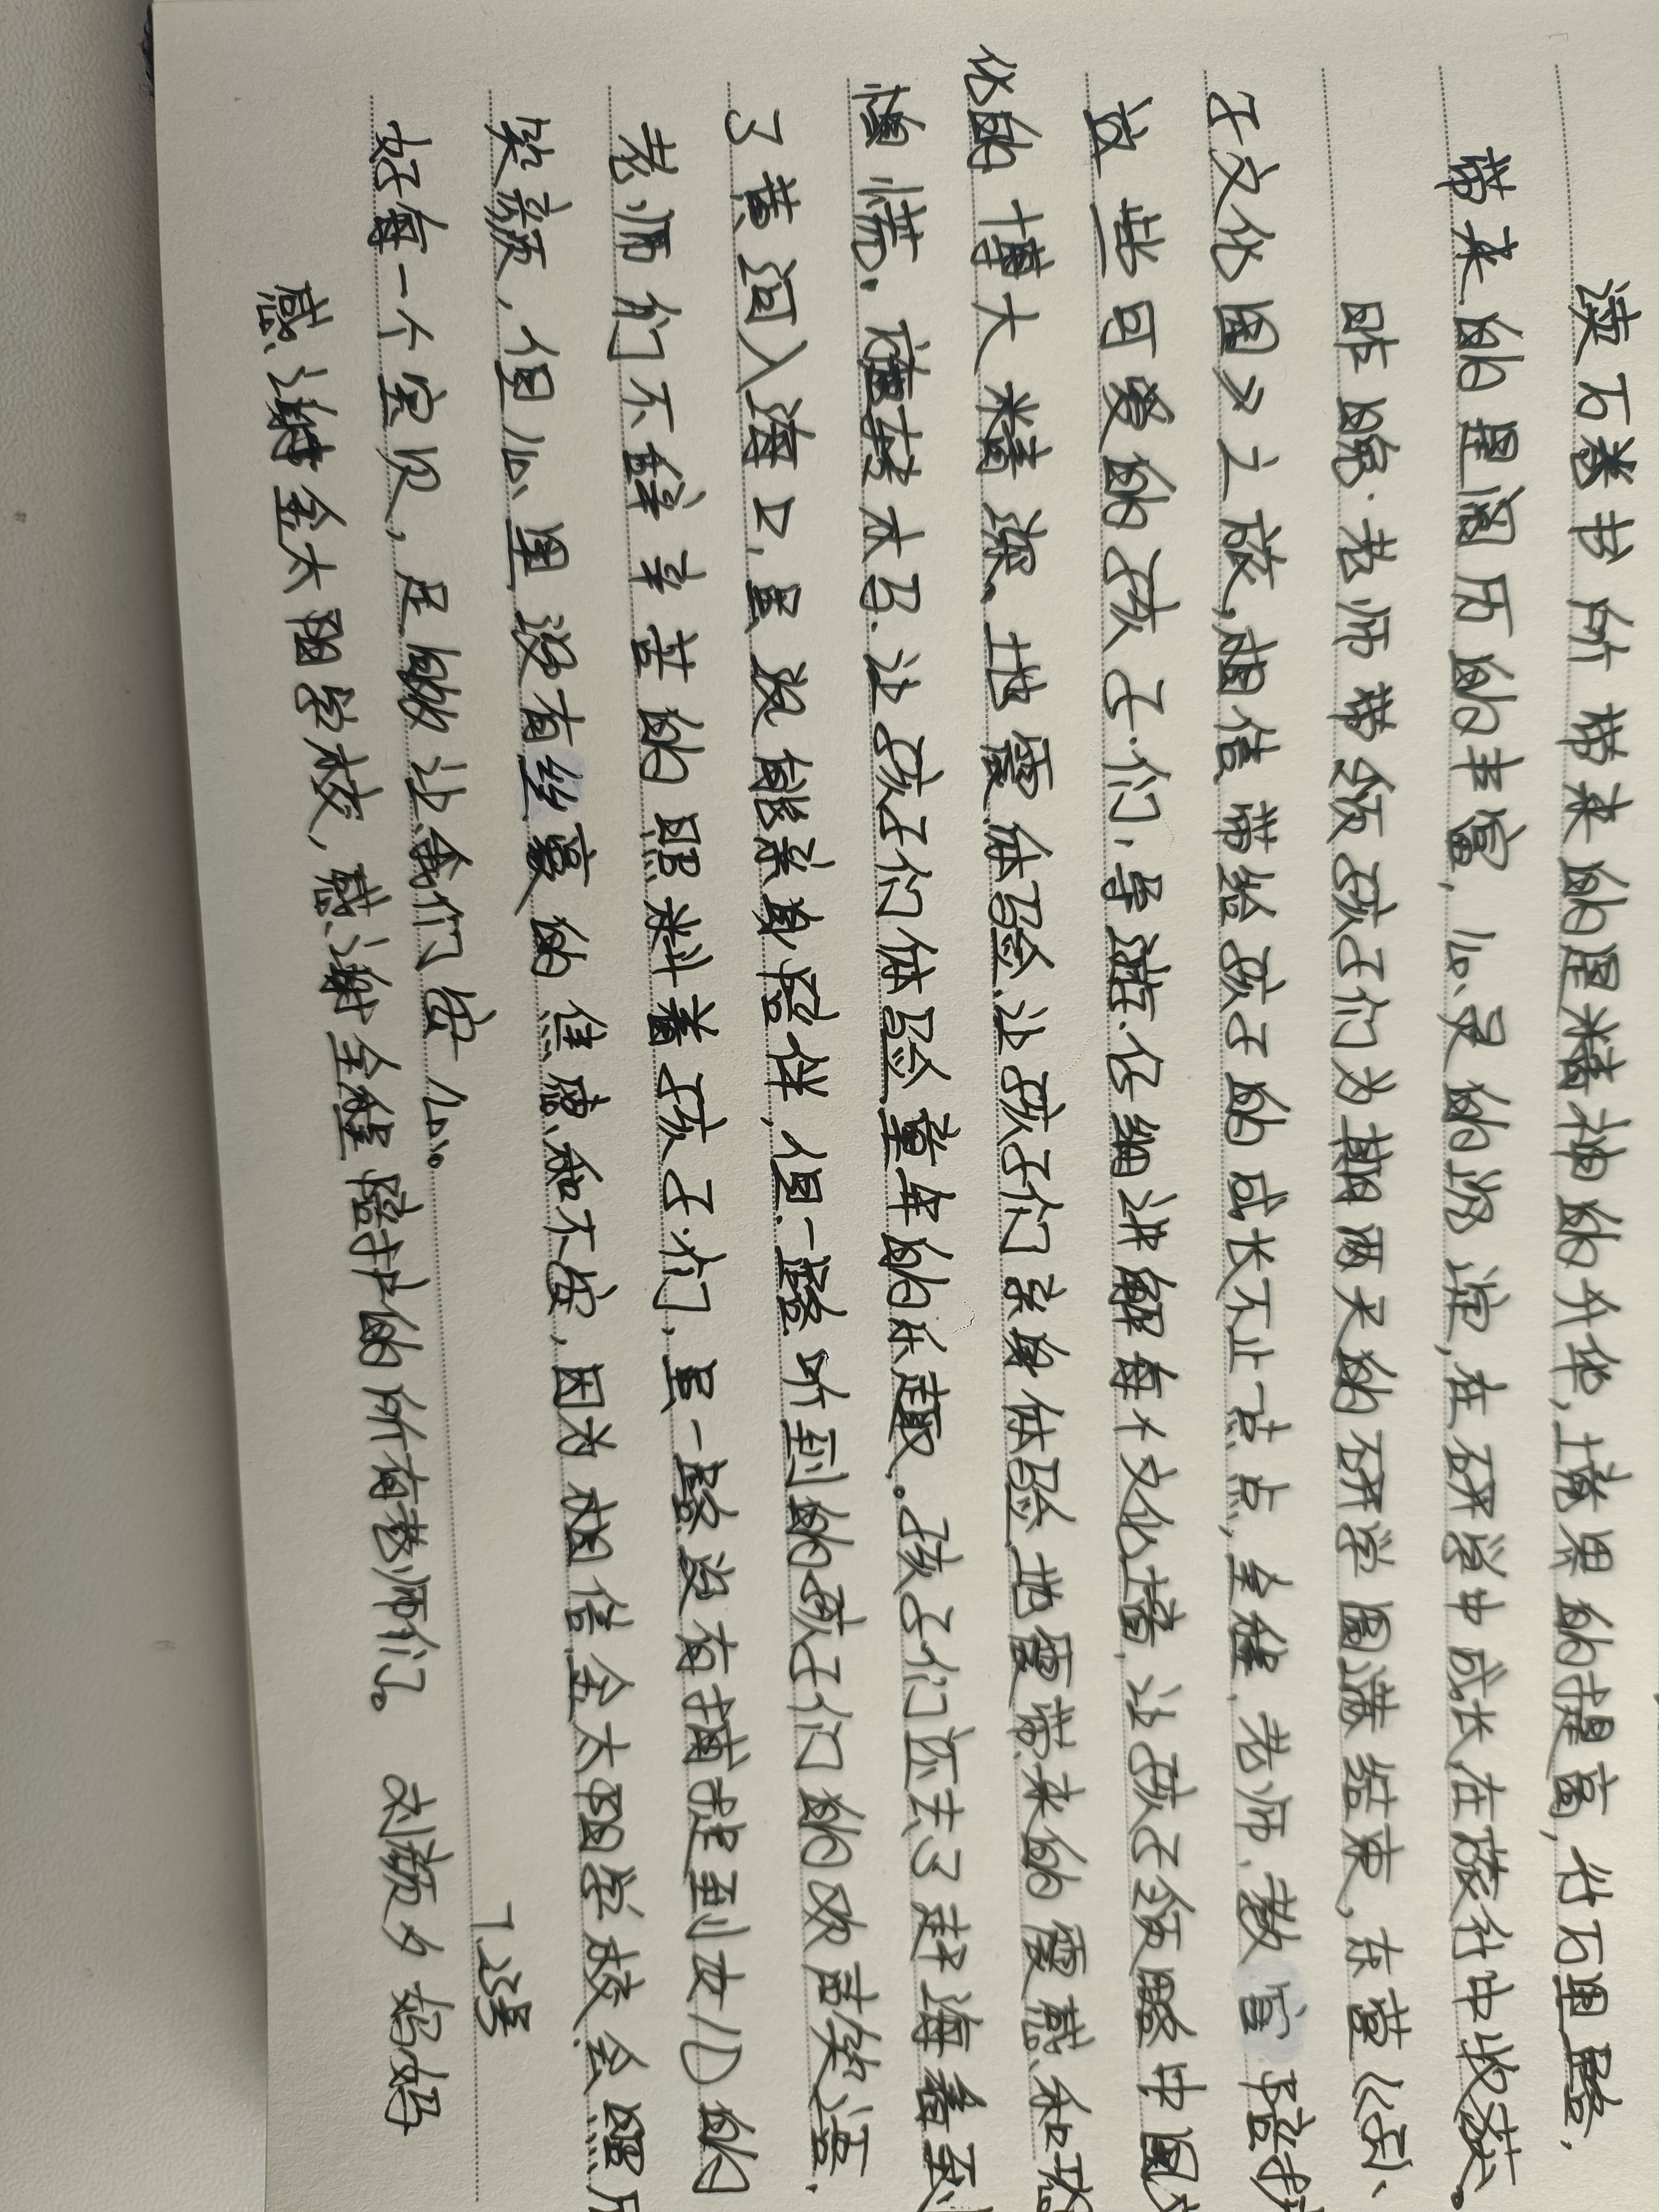 读万卷书所带来的是精神的升华,境界的提高,行万里路,
带来的是阅历的丰富,心灵的洗涤,在研学中成长,在旅行中收获。
昨晚.老师带领孩子们为期两天的研学圆满结束,东营《孙、
子文化园》之旅,相信带给孩子的成长不止一点点,全程,老师、教官陪护
这些可爱的孩子们,导游.仔细讲解每个文化墙,让孩子领略中国文
化的博大精深。地震体验,让孩子们亲身体验地震带来的震感和恐
惧慌.旋转木马.让孩子们体验童年的乐趣。孩子们还去了赶海看到
了黄河入海口,虽没能亲身陪伴,但一路听到的孩子们的欢声笑语.
老师们不辞辛苦的照料着孩子们,虽一路没有捕捉到女儿的
笑颜,但心里没有丝毫的焦虑和不安,因为相信金太阳学校会照顾
好每一个宝贝,足够让我们安心。
感谢金太阳学校,感谢全程陪护的所有老师们。 刘颜夕妈妈
7.2号